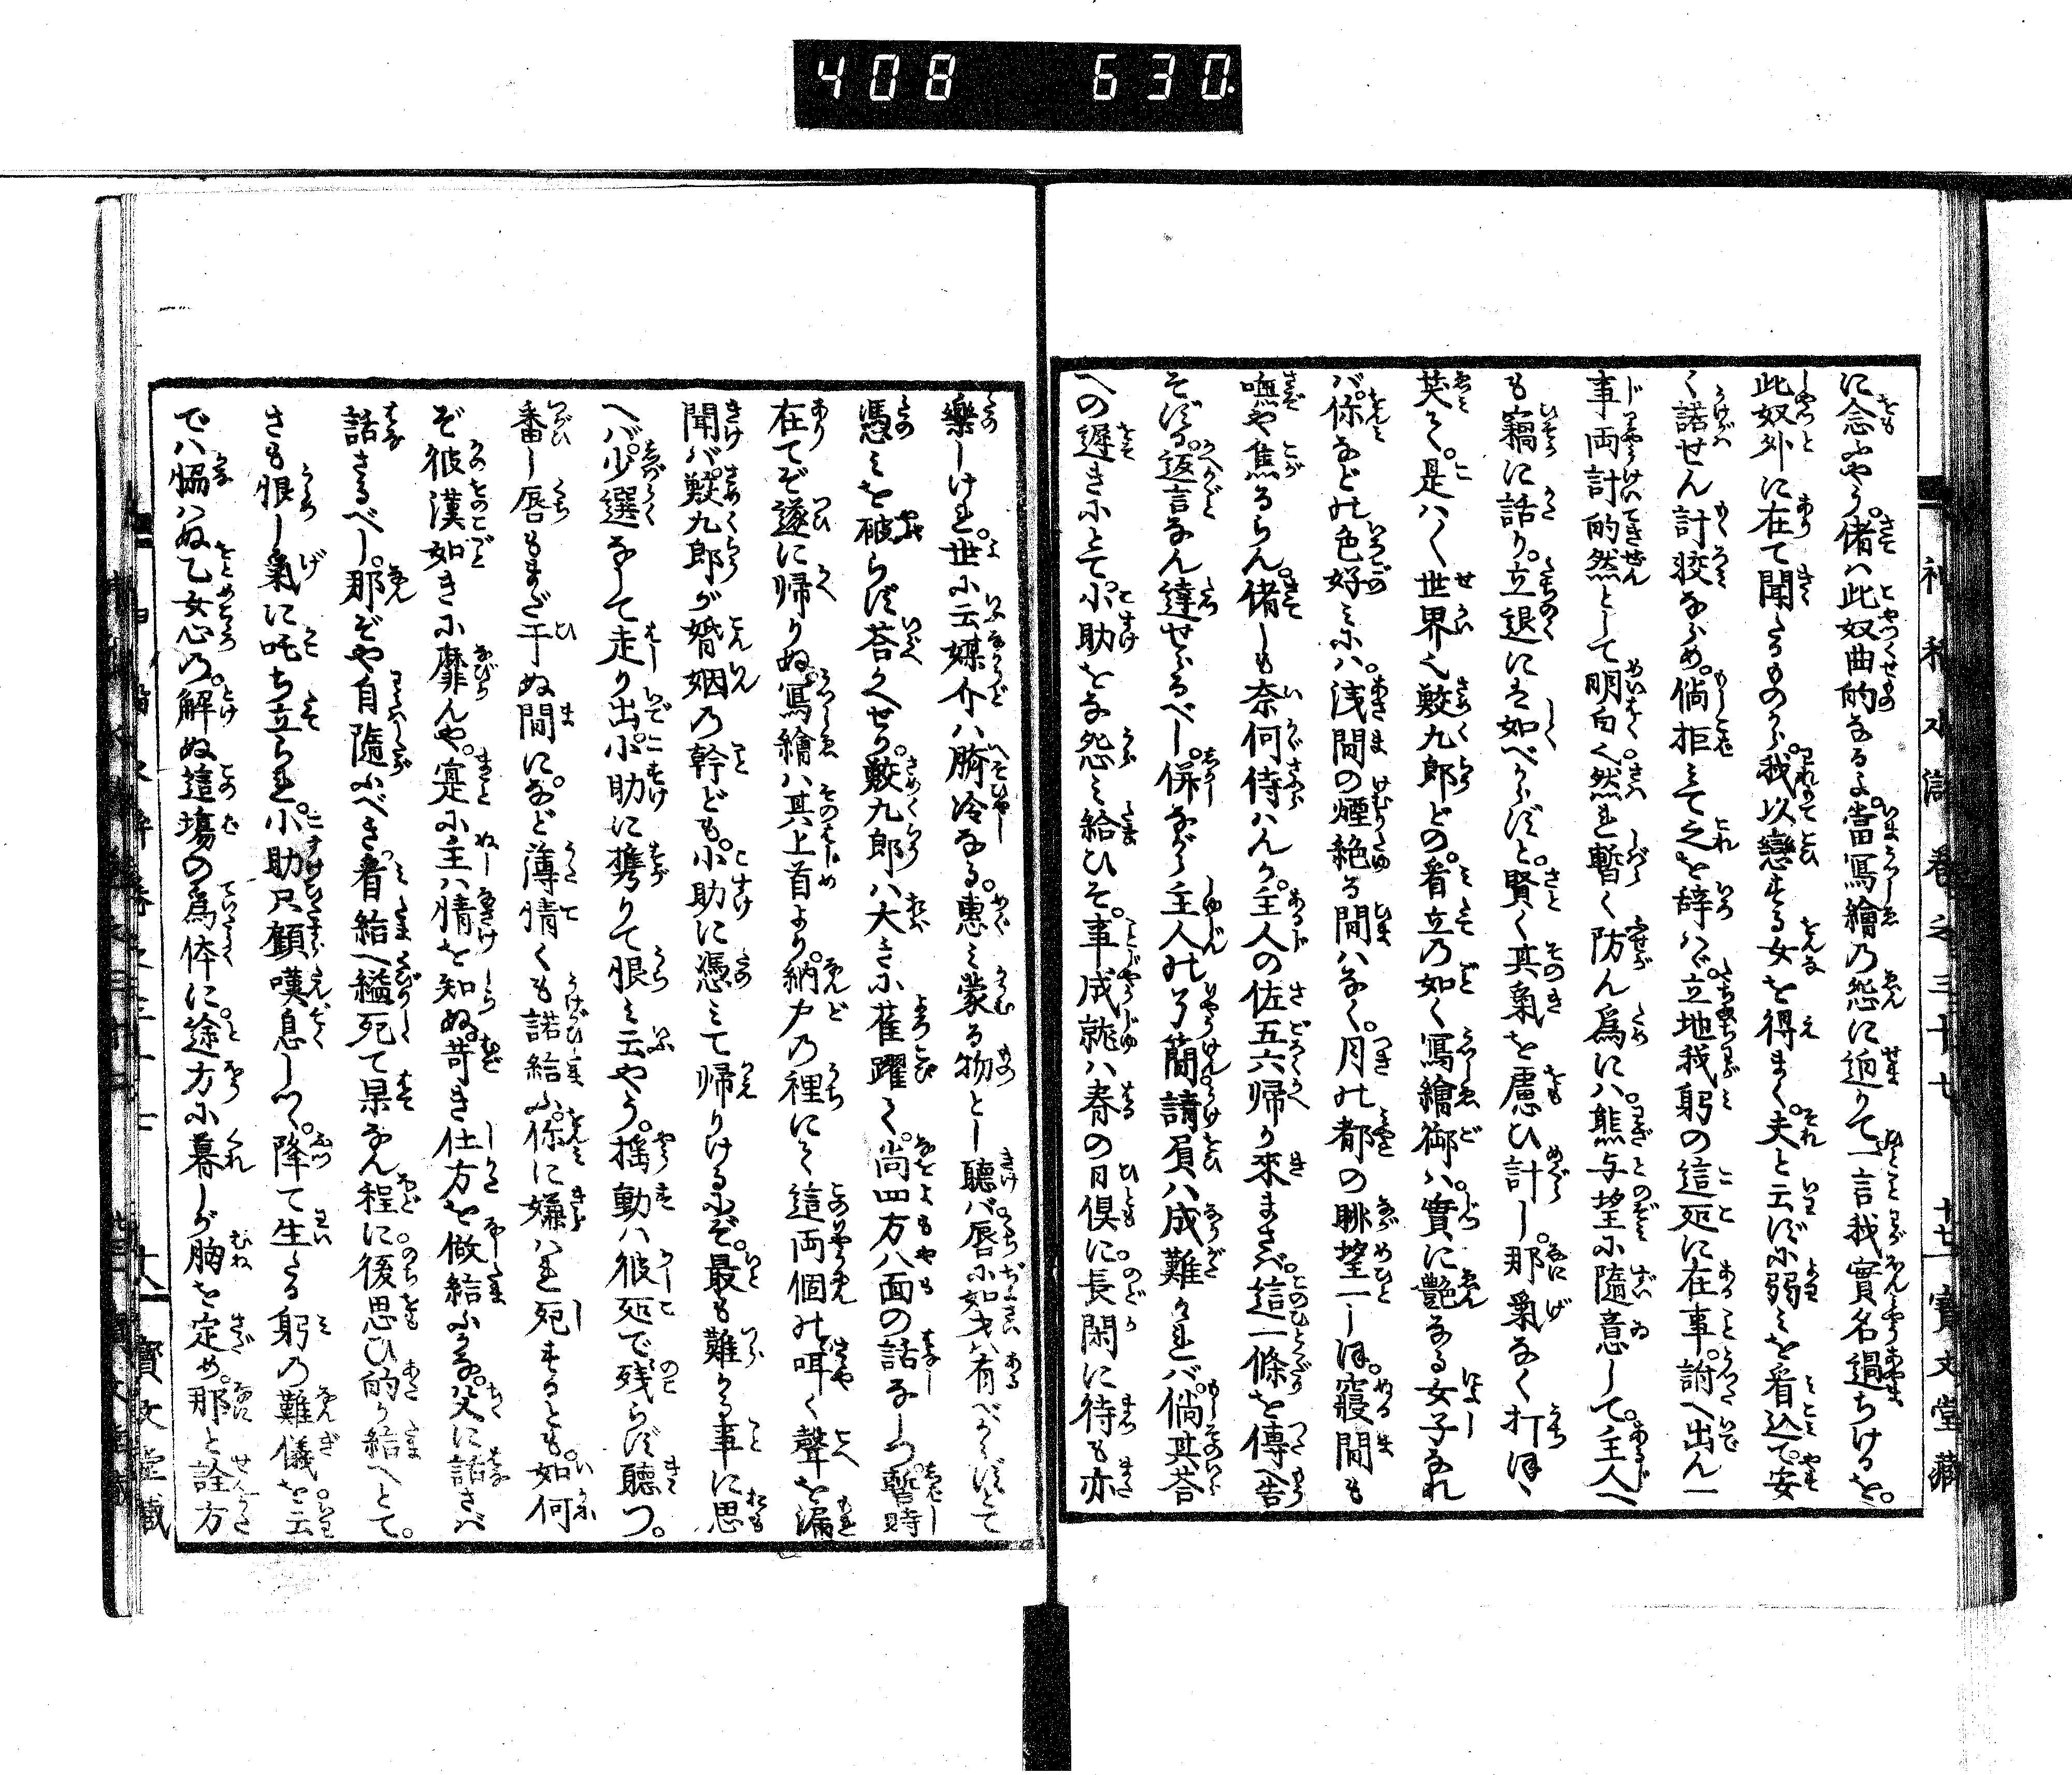 408 630.
に念ふやう。偖ハ此奴曲的なるよ。當冩繪乃怨に迫りて一言我實名過ちけるを。
此奴外に在て聞たるものから。我以戀する女を得まく。夫と云ずに弱ミを看込で。安
く話せん計狡ならめ。倘拒ミて之を辞バ。立地我躬の這処に在事。訴へ出ん一
事両計的然として明白く。然れ暫く防ん爲にハ。熊与望に隨意して。主人へ
も竊に話り。立退にハ如べからずと。賢く其氣を慮ひ計し。那氣なく打ほゝ
笑て。是ハ〱世界之鮫九郎どの。看立乃如く冩繪御ハ。實に艶なる女子なれ
バ。你などの色好ミにハ。浅間の煙絶る間ハなく。月の都の眺望一しほ。寝間も
嘸や焦るらん。偖しも奈何待ハんか。主人の佐五六帰り來まさバ。這一條を傳へ告
そずる。返言なん達せふるべし。併ながら主人の了簡請肩ハ成難けれバ。倘其答
への遅きにとて。小助をな怨ミ給ひそ。事成就ハ春の日倶に。長閑に待も亦
樂しけれ。世に云媒介ハ臍冷なる。惠ミ蒙る物とし聽バ。唇に如才ハ有べからずとて
憑ミを破らず荅へせり。鮫九郎ハ大きに雀躍て。尚四方八面の話なしつ。暫時
在てぞ遂に帰りぬ。冩繪ハ其上首より。納戸乃裡にて這両個の咡く聲を漏
聞バ。鮫九郎が婚姻乃幹ども。小助に憑ミて帰りけるにぞ。最も難かる事に思
へバ。少選なして走り出。小助に携りて恨ミ云やう。搖動ハ彼処で残らず聽つ。
番し唇もまだ干ぬ間に。など薄情くも諾給ふ。你に嫌ハれ死するとも。如何
ぞ彼漢如きに靡んや。寔に主ハ情を知ぬ。苛き仕方を做給ふかな。父に話さバ
話さるべし。那ぞや自隨ふべき。看給へ縊死て果なん程に。後思ひ的り給へとて。
さも恨し氣に叱ち立られ。小助只顧嘆息しつゝ。降て生たる躬の難儀を。云
でハ恊ハぬ乙女心乃。解ぬ這塲の爲体に。途方に暮しが胸を定め。那と詮方